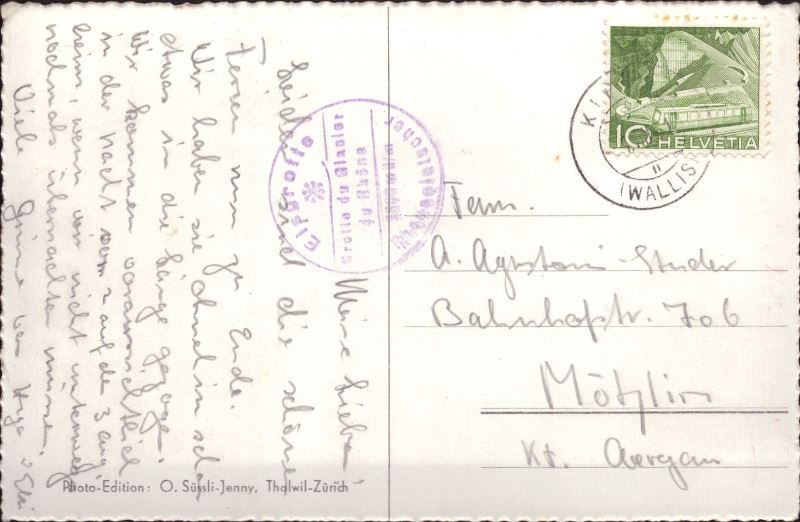 Meine Lieben,
Leider sind die schönen
Ferien nun zu Ende.
Wir haben sie ohnehin schon
etwas in die Länge gezogen.
Wir kommen voraussichtlich
in der Nacht vom 2 auf den 3 Aug.
heim, wenn wir nicht unterwegs
nochmals übernachten müssen.
Viele Grüsse von
Photo-Edition: O. Süssli-Jenny, Thalwil-Zürich
Eisgrotte
Grotte du Glacier
(WALLIS)
10 HELVETIA
Fam.
A. Agustoni-Studer
Bahnhofstr. 706
Möhlin
Kt. Aargau